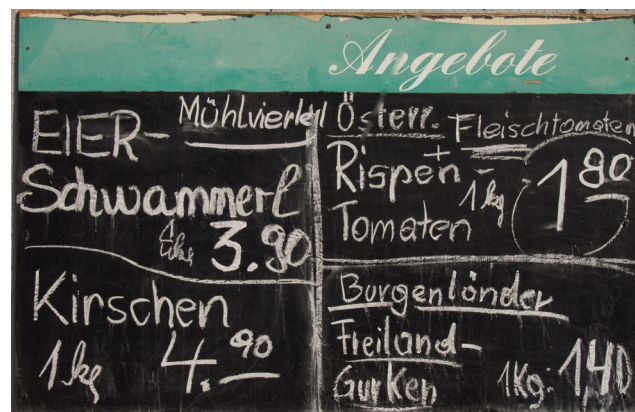 Angebote
Mühlviertel
EIER-
Schwammerl
3.90
Kirschen
1 kg 4.90
Österr. Fleischtomaten
+
Rispen-
Tomaten
1 kg 1 80
Burgenländer
Freiland-
Gurken 1Kg: 1,40